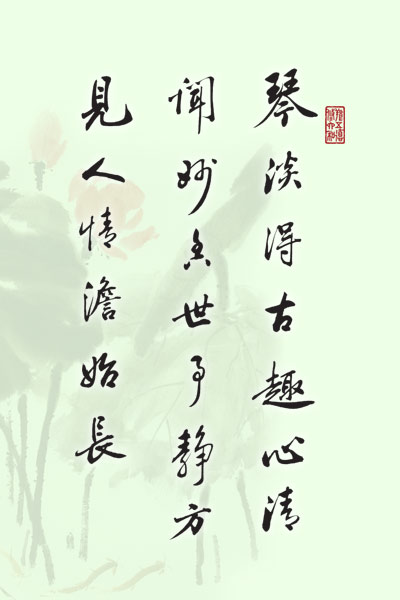 琴淡得古趣心清
闻妙香世事静方
見人情澹始長